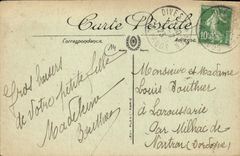 Carte Postale
Correspondance
Adresse
DIVES
10c
Gros baisers
de votre petite fille
Madeleine
Monsieur et Madame
Louis Bouthier
à Laroussarie
par Milhac de
Nontron (Dordogne)